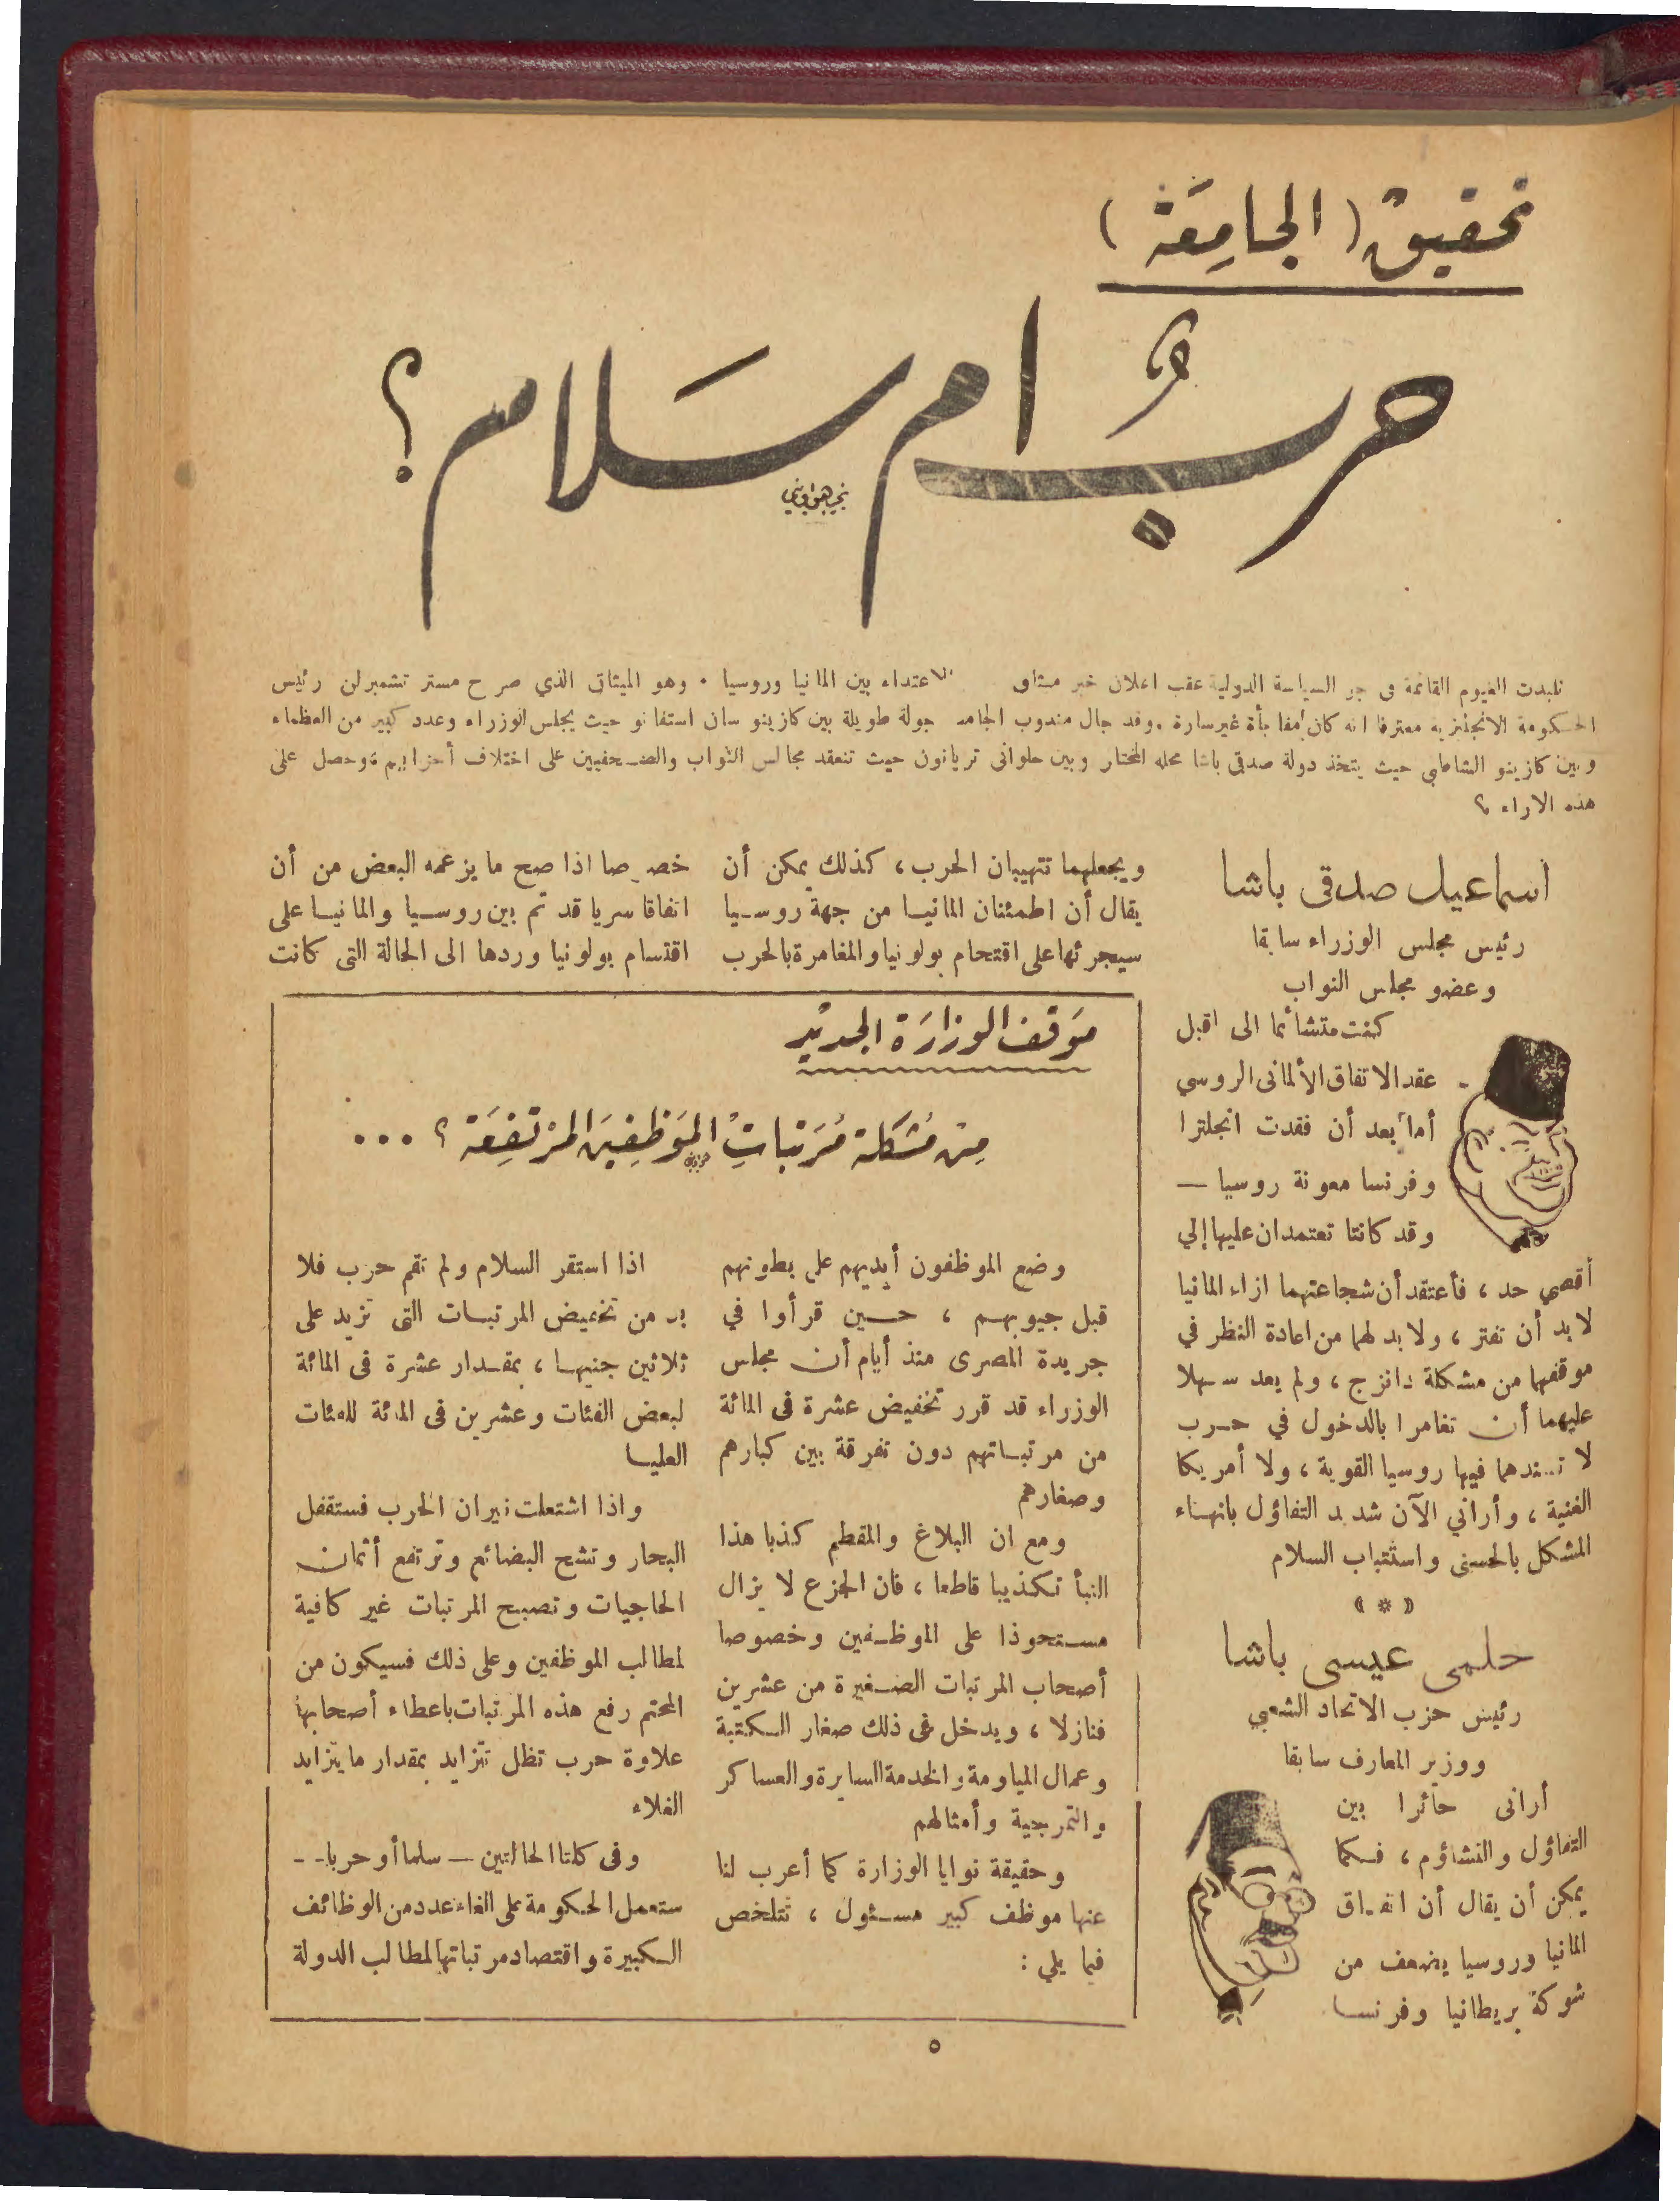 تحقيق ( الجامعة )
حرب ام سلام ؟
نجيب هواويني
تلبدت الغيوم القائمة في جو السياسة الدولية عقب اعلان خبر ميثاق الاعتداء بين المانيا وروسيا . وهو الميثاق الذي صرح مستر تشمبرلن رئيس
الحكومة الانجليزية معترفا انه كان مفاجأة غير سارة . وقد جال مندوب الجامعة جولة طويلة بين كازينو سان استفانو حيث يجلس الوزراء وعدد كبير من العظماء
وبين كازينو الشاطبي حيث يتخذ دولة صدقي باشا محله المختار وبين حلواني تريانون حيث تنعقد مجالس النواب والصحفيين على اختلاف أحزابهم ، وحصل على
هذه الاراء ؟
اسماعيل صدقى باشا
رئيس مجلس الوزراء سابقا
وعضو مجلس النواب
كنت متشائما الى اقبل
عقد الاتفاق الألمانى الروسي -
أما بعد أن فقدت انجلترا
وفرنسا معونة روسيا —
وقد كانتا تعتمدان عليها إلي
أقصي حد ، فأعتقد أن شجاعتهما ازاء المانيا
لا بد أن تفتر ، ولا بد لهما من اعادة النظر في
موقفهما من مشكلة دانزج ، ولم يعد سهلا
عليهما أن تغامرا بالدخول في حرب
لا تسندهما فيها روسيا القوية ، ولا أمريكا
الغنية ، وأراني الآن شديد التفاؤل بانهاء
المشكل بالحسنى واستتباب السلام
« * »
حلمى عيسى باشا
رئيس حزب الاتحاد الشعبي
ووزير المعارف سابقا
أرانى حائرا بين
التفاؤل والتشاؤم ، فكما
يمكن أن يقال أن اتفاق
المانيا وروسيا يضعف من
شوكة بريطانيا وفرنسا
ويجعلهما تتهيبان الحرب ، كذلك يمكن أن
يقال أن اطمئنان المانيا من جهة روسيا
سيجرئها على اقتحام بولونيا والمغامرة بالحرب
خصوصا اذا صح ما يزعمه البعض من أن
اتفاقا سريا قد تم بين روسيا والمانيا على
اقتسام بولونيا وردها الى الحالة التى كانت
موقف الوزارة الجديدة
من مشكلة مرتبات الموظفين المرتفعة ؟ ...
وضع الموظفون أيديهم على بطونهم
قبل جيوبهم ، حسين قرأوا في
جريدة المصرى منذ أيام أن مجلس
الوزراء قد قرر تخفيض عشرة فى المائة
من مرتباتهم دون تفرقة بين كبارهم
وصغارهم
ومع ان البلاغ والمقطم كذبا هذا
النبأ تكذيبا قاطعا ، فان الجزع لا يزال
مستحوذا على الموظفين وخصوصا
أصحاب المرتبات الصغيرة من عشرين
فنازلا ، ويدخل فى ذلك صغار الكتبة
وعمال المياومة والخدمة السايرة والعساكر
والتمرجية وأمثالهم
وحقيقة نوايا الوزارة كما أعرب لنا
عنها موظف كبير مسئول ، تتلخص
فيما يلي :
اذا استقر السلام ولم تقم حرب فلا
بد من تخفيض المرتبات التى تزيد على
ثلاثين جنيها ، بمقدار عشرة فى المائة
لبعض الفئات وعشرين فى المائة للفئات
العليا
واذا اشتعلت نيران الحرب فستقفل
البحار وتشح البضائع وترتفع أثمان
الحاجيات وتصبح المرتبات غير كافية
لمطالب الموظفين وعلى ذلك فسيكون من
المحتم رفع هذه المرتبات باعطاء أصحابها
علاوة حرب تظل تتزايد بمقدار ما يتزايد
الغلاء
وفى كلتا الحالتين — سلما أو حربا --
ستعمل الحكومة على الغاء عدد من الوظائف
الكبيرة واقتصاد مرتباتها لمطالب الدولة
٥